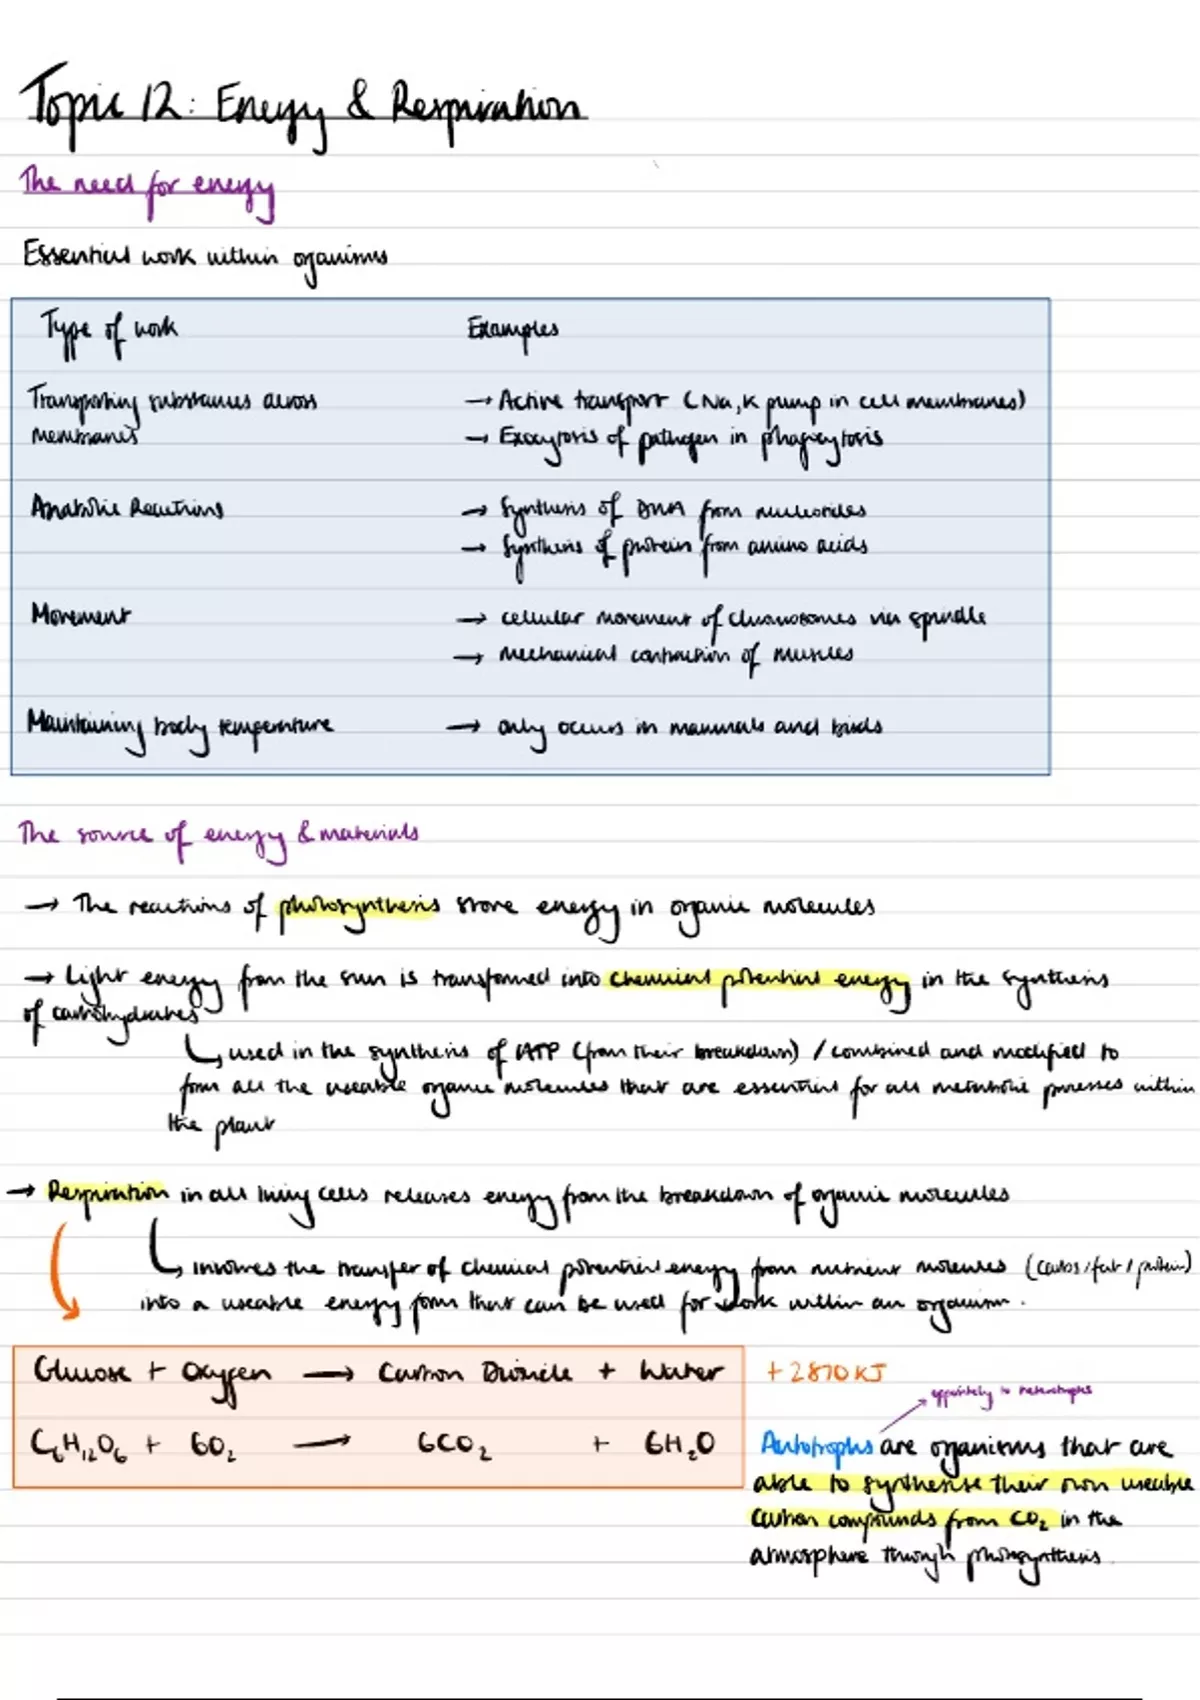 Topic 12: Energy & Respiration
The need for energy
Essential work within organisms
Type of work Examples
Transporting substances across → Active transport (Na, K pump in cell membranes)
membranes → Exocytosis of pathogen in phagocytosis
Anabolic Reactions → Synthesis of DNA from nucleotides
→ Synthesis of protein from amino acids
Movement → cellular movement of chromosomes via spindle
→ Mechanical contraction of muscles
Maintaining body temperature → only occurs in mammals and birds
The source of energy & materials
→ The reactions of photosynthesis store energy in organic molecules
→ Light energy from the sun is transformed into chemical potential energy in the synthesis
of carbohydrates
↳ used in the synthesis of ATP (from their breakdown) / combined and modified to
form all the useable organic molecules that are essential for all metabolic processes within
the plant
→ Respiration in all living cells releases energy from the breakdown of organic molecules
↳ involves the transfer of chemical potential energy from nutrient molecules (carbs / fat / protein)
into a useable energy form that can be used for work within an organism.
Glucose + Oxygen → Carbon Dioxide + Water + 2870 KJ
C₆H₁₂O₆ + 6O₂ → 6CO₂ + 6H₂O
to heterotrophs
Autotrophs are organisms that are
able to synthesise their own useable
carbon compounds from CO₂ in the
atmosphere through photosynthesis.